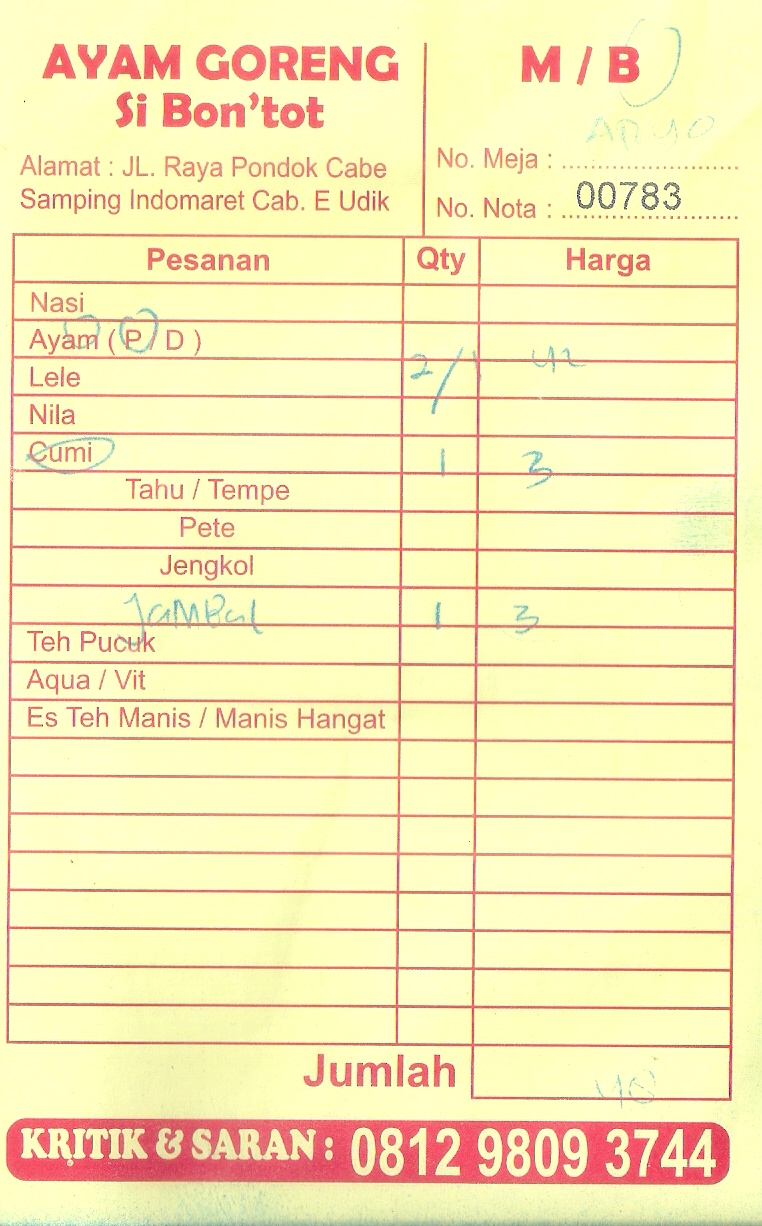 AYAM GORENG
Si Bon'tot
Alamat : JL. Raya Pondok Cabe
Samping Indomaret Cab. E Udik
M / B
No. Meja :
No. Nota : 00783
Pesanan Qty Harga
Nasi
Ayam ( P / D ) 2/1 42
Lele
Nila
Cumi 1 3
Tahu / Tempe
Pete
Jengkol
Jambal 1 3
Teh Pucuk
Aqua / Vit
Es Teh Manis / Manis Hangat
Jumlah 48
KRITIK & SARAN : 0812 9809 3744